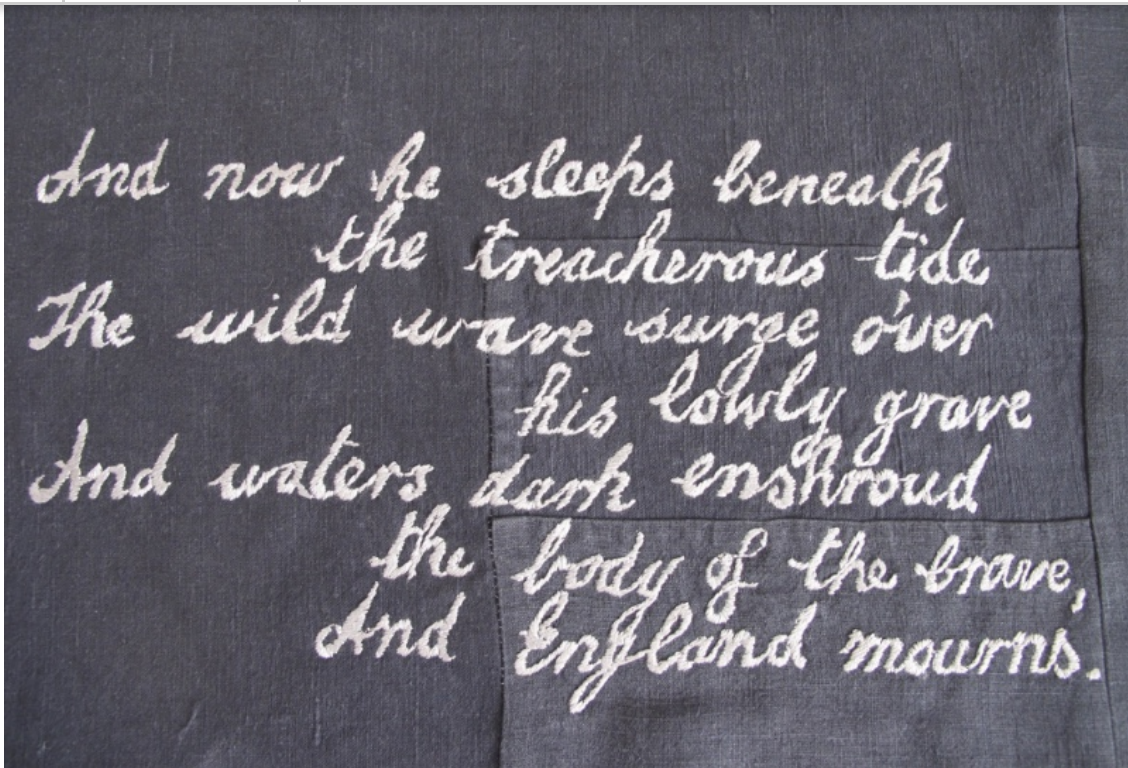 And now he sleeps beneath
the treacherous tide
The wild wave surge o'ver
his lowly grave
And waters dark enshroud
the body of the brave,
And England mourns.